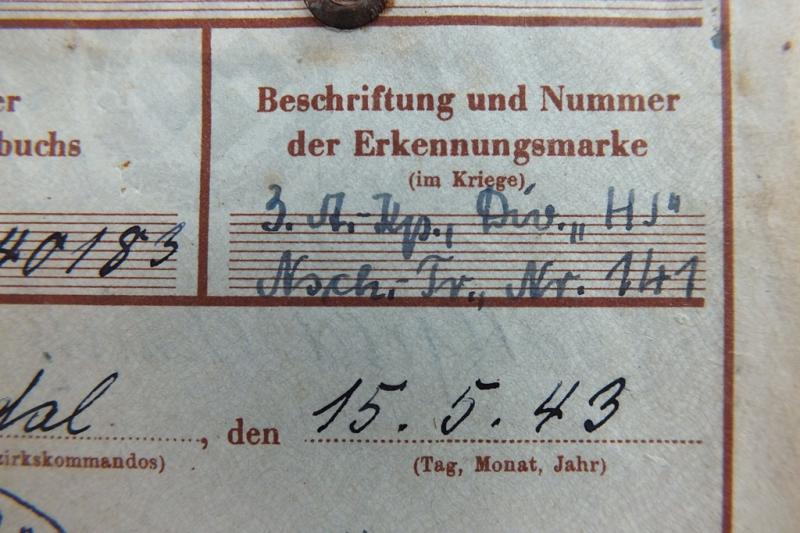 er
buchs
Beschriftung und Nummer
der Erkennungsmarke
(im Kriege)
3. A.-Kp., Div. „HJ“
40183
Nsch.-Tr., Nr. 141
dal, den 15. 5. 43
zirkskommandos)
(Tag, Monat, Jahr)